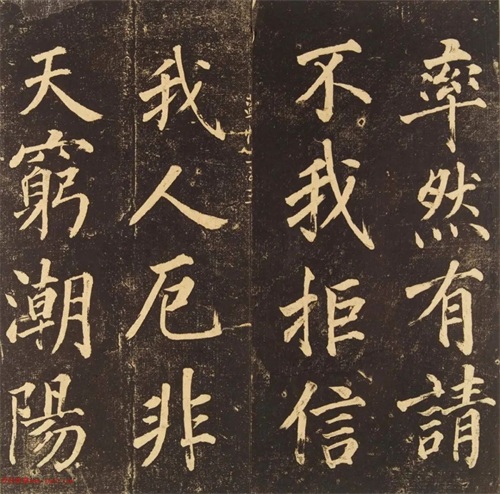 率然有請
不我拒信
我人厄非
天窮潮陽